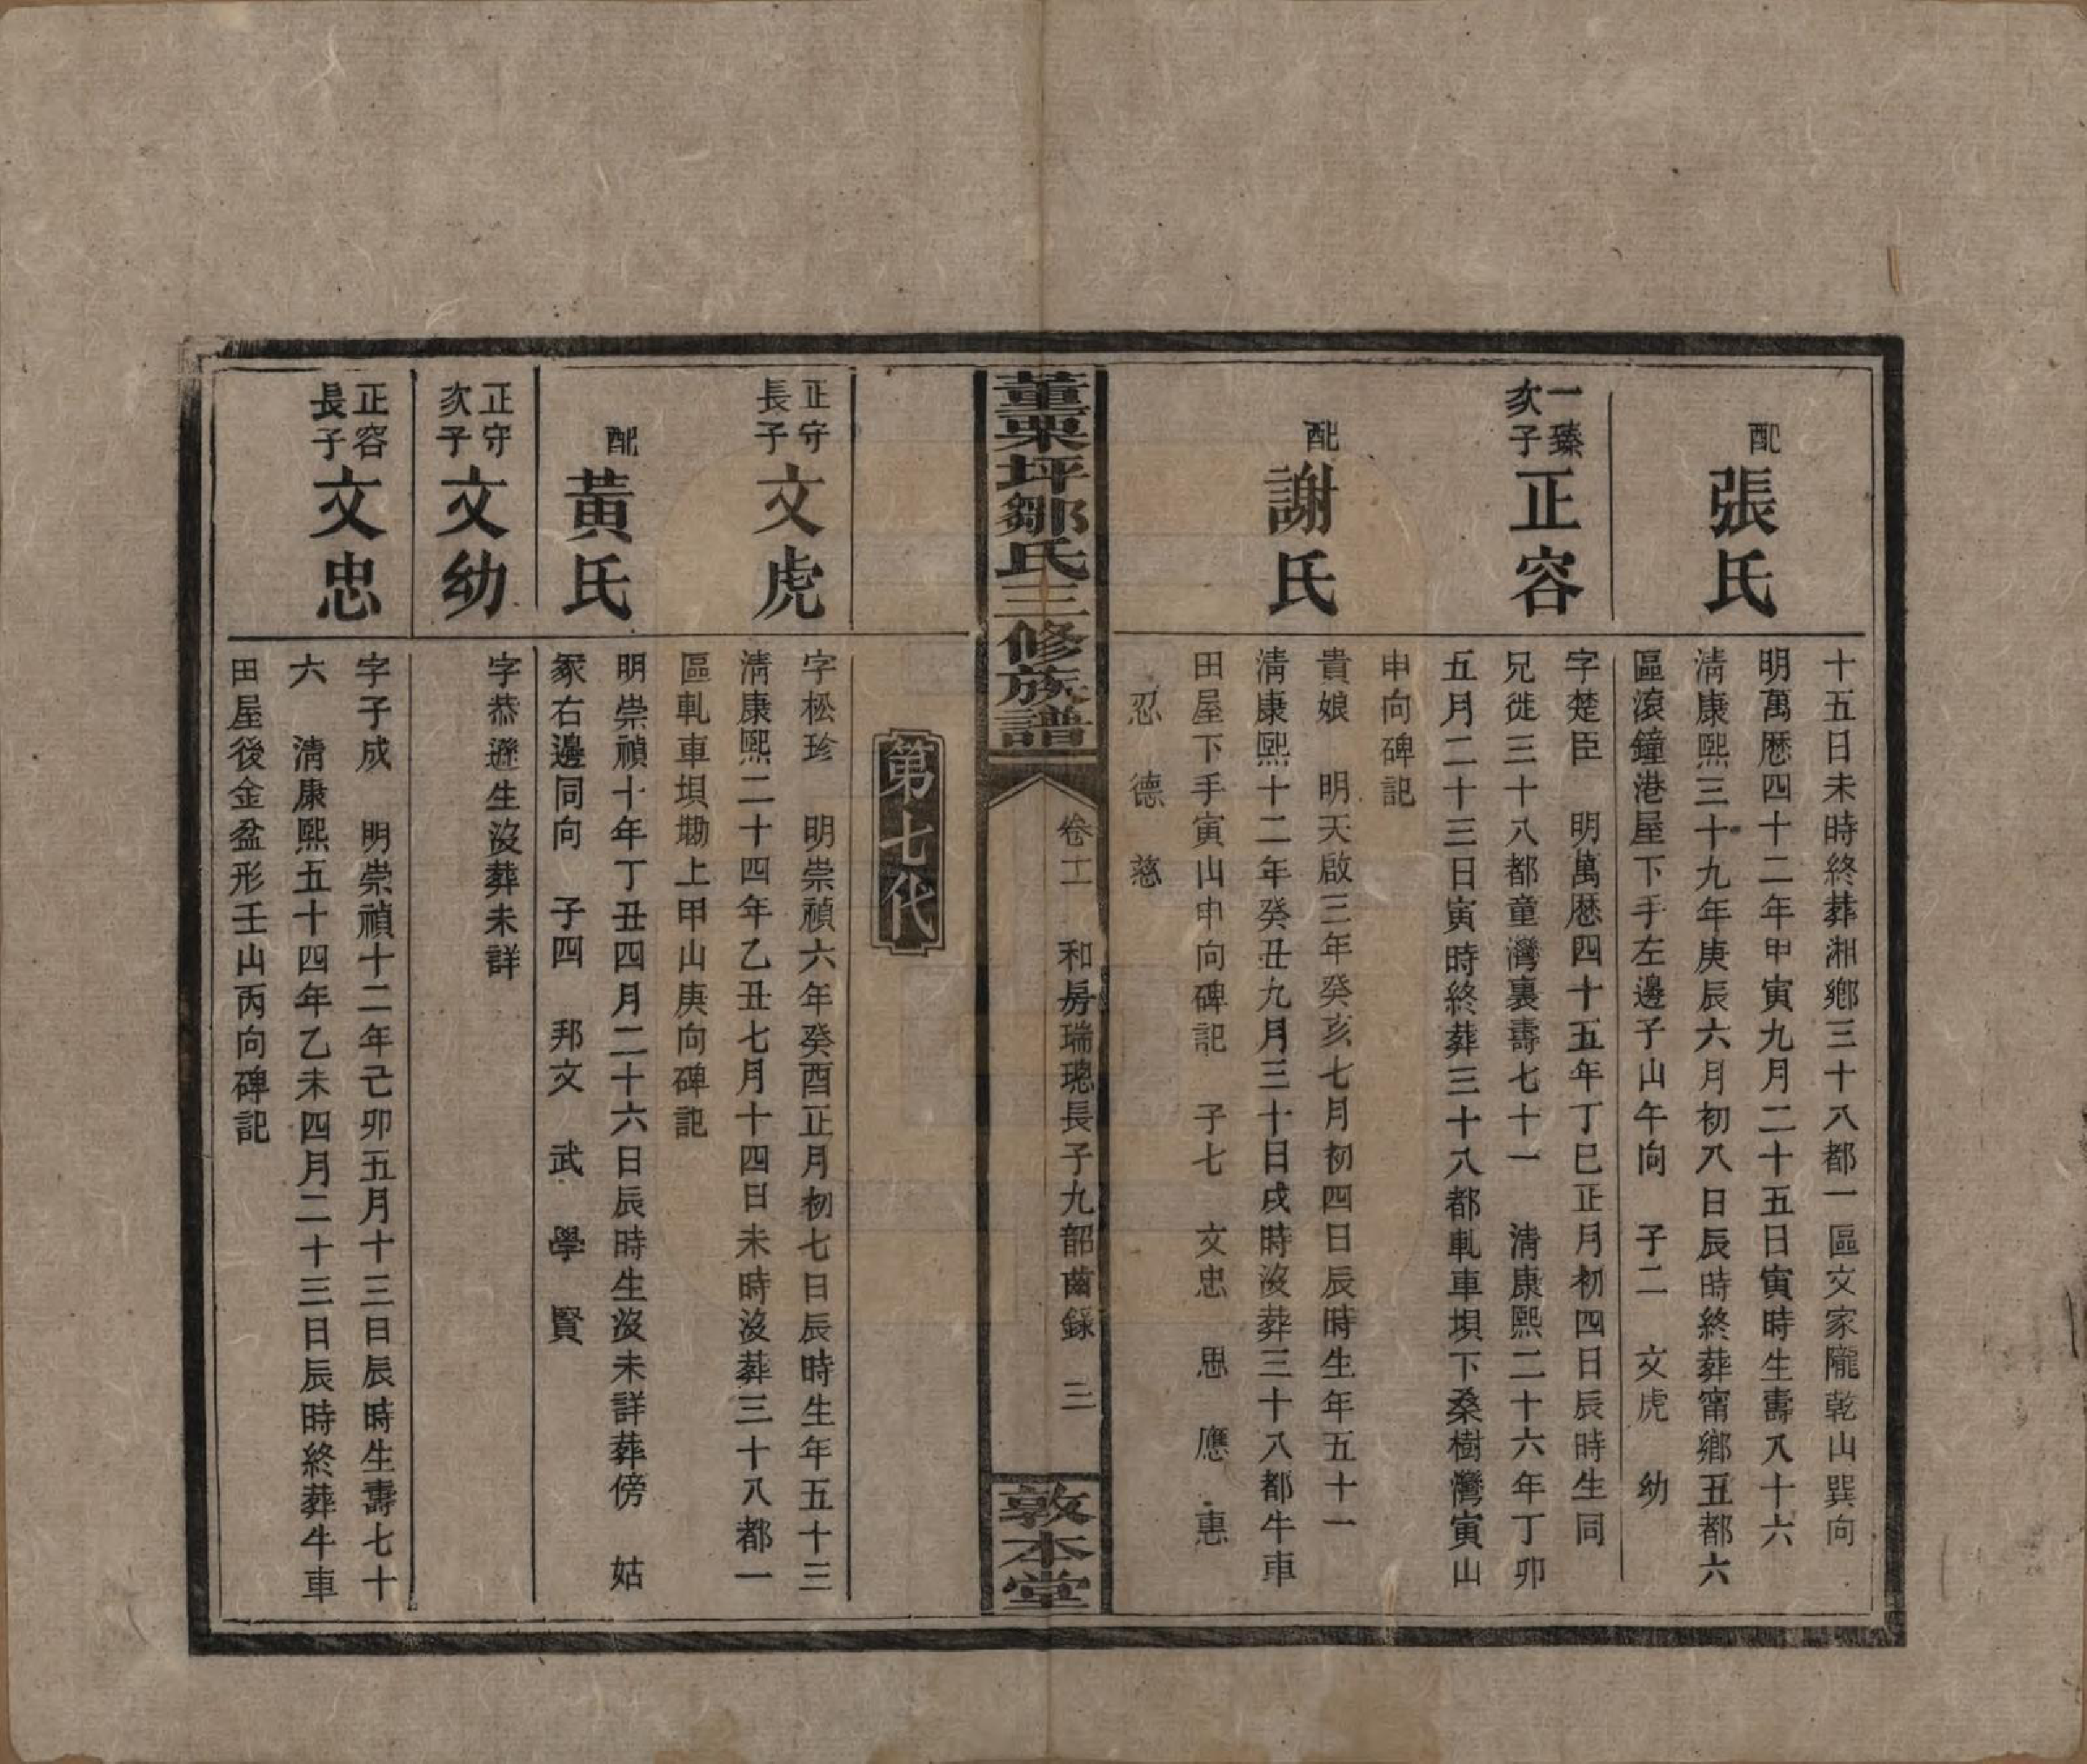 十五日未時終葬湘鄉三十八都一區文家隴乾山巽向
配
張氏
明萬歷四十二年甲寅九月二十五日寅時生壽八十六
清康熙三十九年庚辰六月初八日辰時終葬甯鄉五都六
區滾鐘港屋下手左邊子山午向 子二 文虎 幼
一臻
次子
正容
字楚臣 明萬歷四十五年丁巳正月初四日辰時生同
兄徙三十八都童灣裏壽七十一 清康熙二十六年丁卯
五月二十三日寅時終葬三十八都軋車垻下桑樹灣寅山
申向碑記
配
謝氏
貴娘 明天啟三年癸亥七月初四日辰時生年五十一
清康熙十二年癸丑九月三十日戌時沒葬三十八都牛車
田屋下手寅山申向碑記 子七 文忠 思 應 惠
忍 德 慈
董栗坪鄒氏三修族譜
卷十一 和房瑞璁長子九韶齒錄 三
敦本堂
第七代
正守
長子
文虎
字松珍 明崇禎六年癸酉正月初七日辰時生年五十三
清康熙二十四年乙丑七月十四日未時沒葬三十八都一
區軋車垻塝上甲山庚向碑記
配
黃氏
明崇禎十年丁丑四月二十六日辰時生沒未詳葬傍 姑
冢右邊同向 子四 邦文 武 學 賢
正守
次子
文幼
字恭遜生沒葬未詳
正容
長子
文忠
字子成 明崇禎十二年己卯五月十三日辰時生壽七十
六 清康熙五十四年乙未四月二十三日辰時終葬牛車
田屋後金盆形壬山丙向碑記